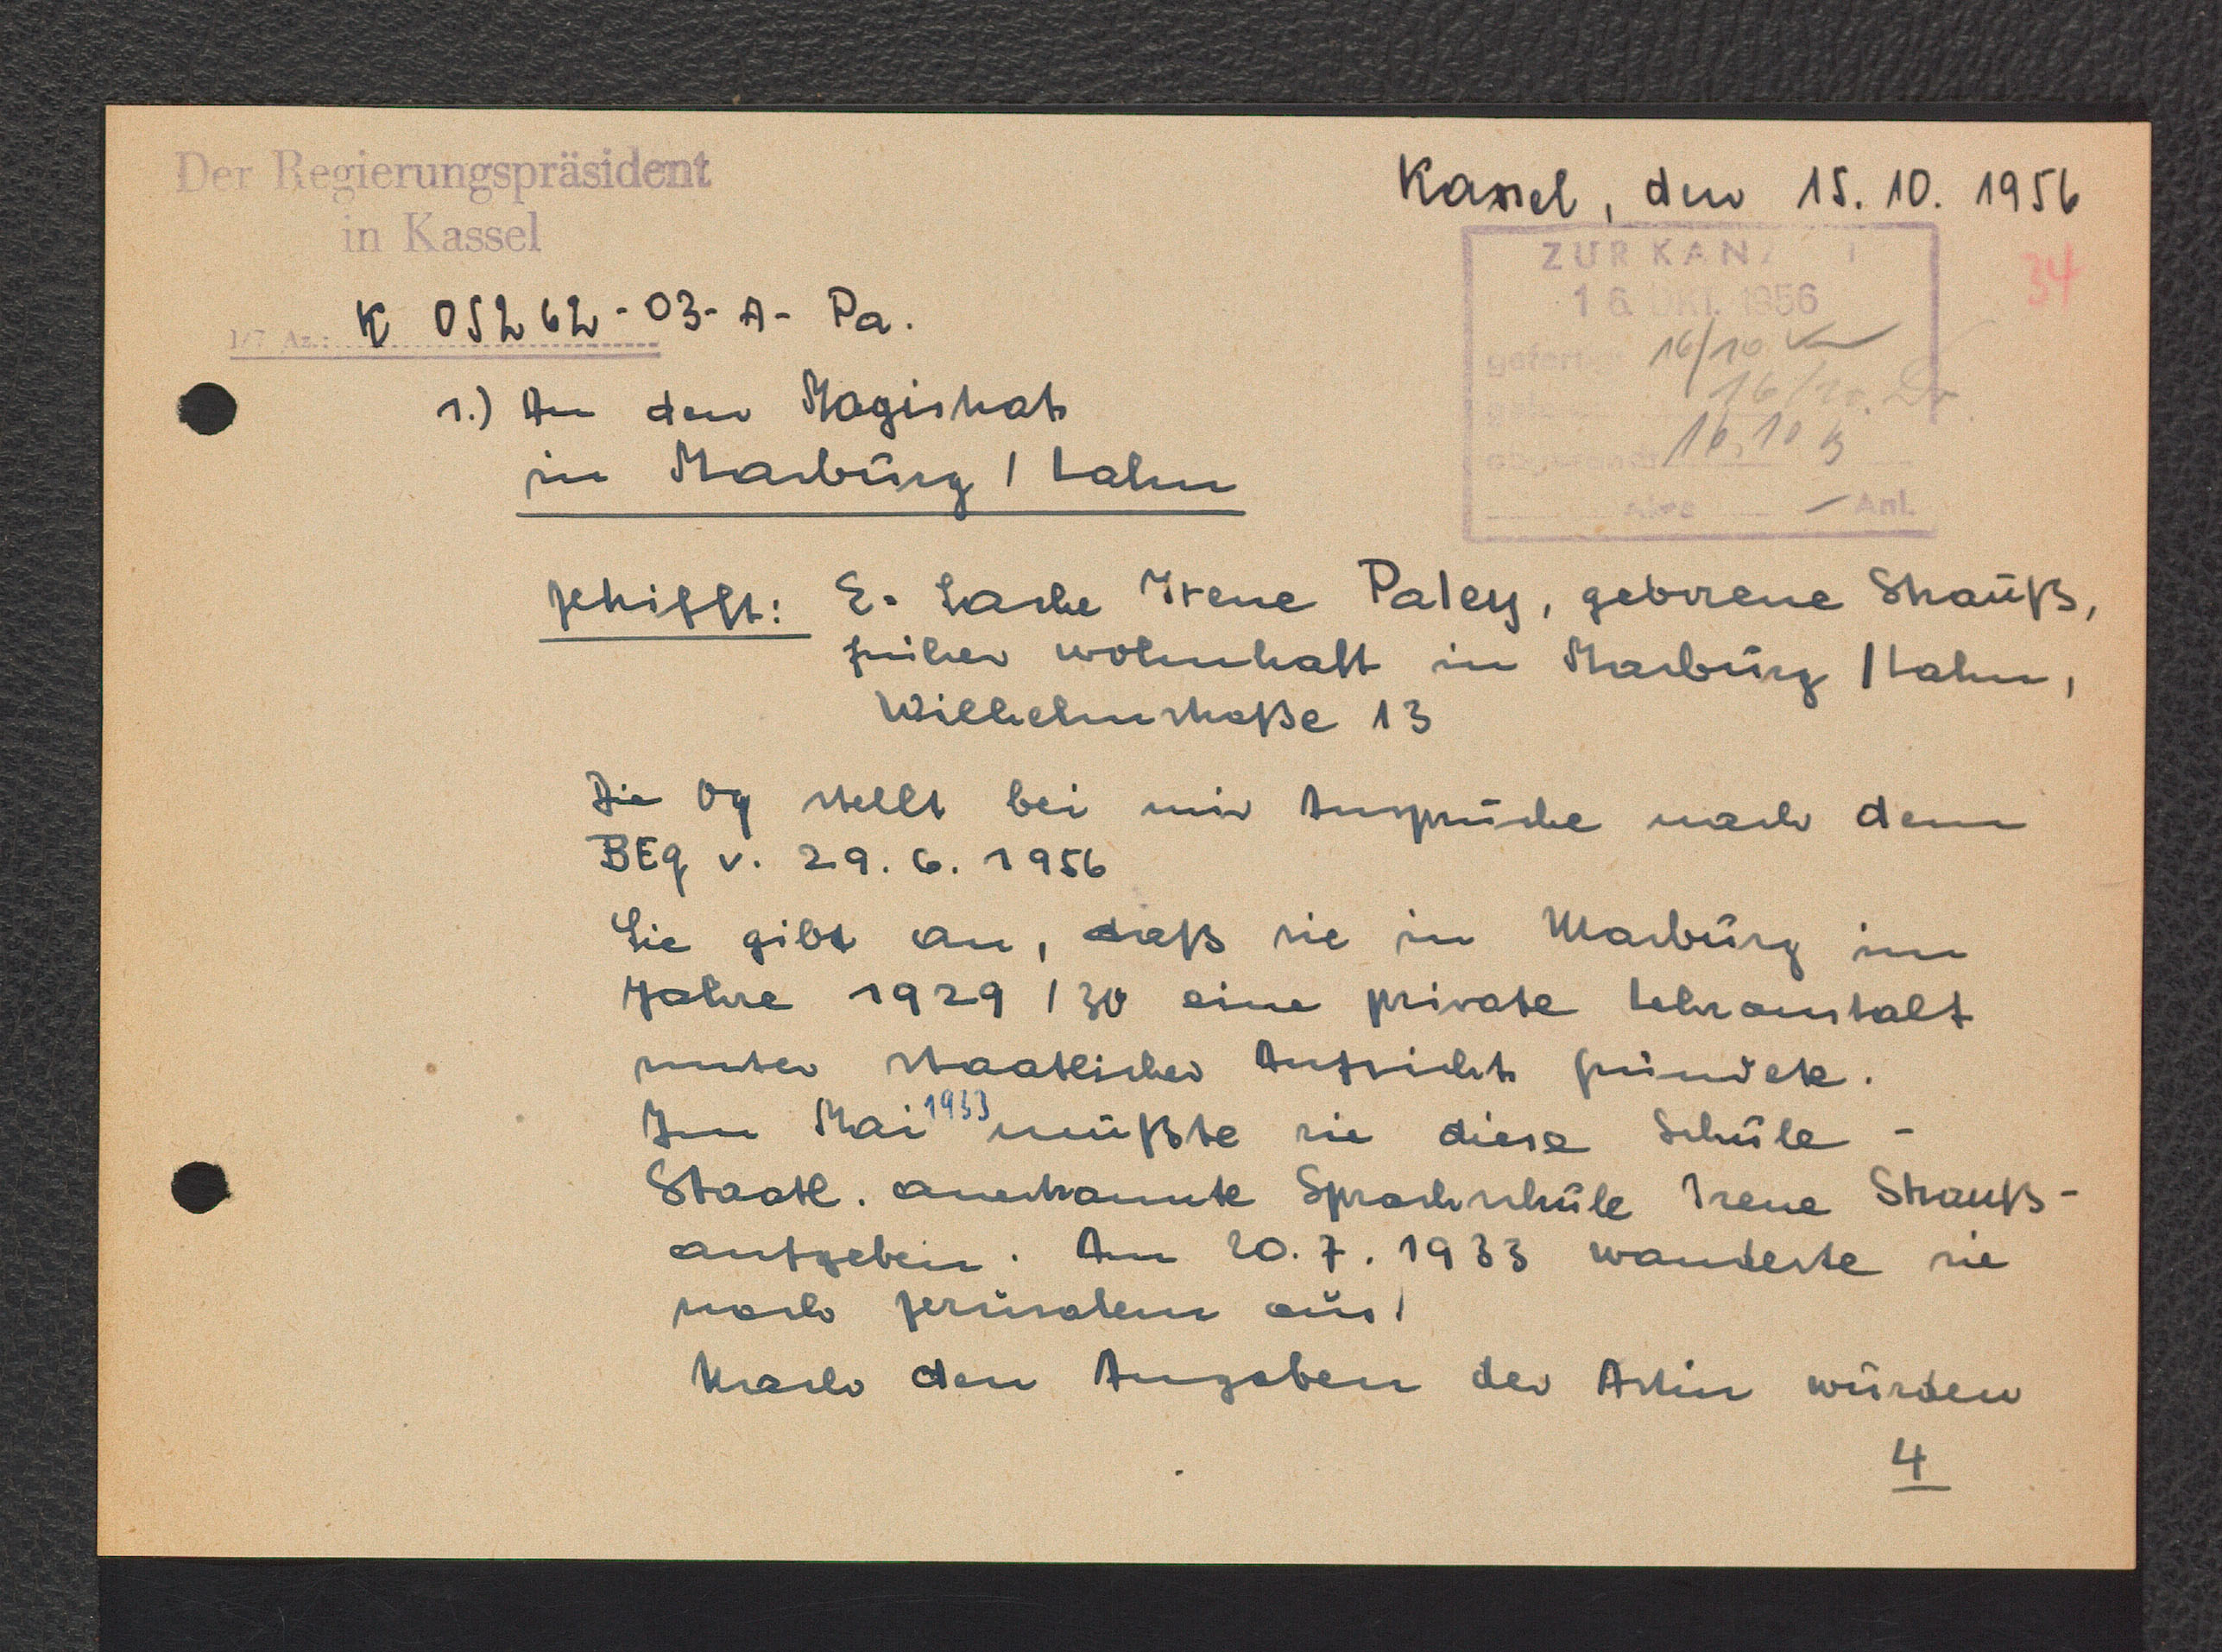 Der Regierungspräsident
in Kassel
I/7 Az.: K 05262-03-A- Pa.
Kassel, den 15. 10. 1956
34
ZUR KAN
16 OKT. 1956
16/10
16/10.
16.10
Anl.
1.) An den Magistrat
in Marburg / Lahn
betrifft: E-Sache Irene Paley, geborene Strauß,
früher wohnhaft in Marburg / Lahn,
Wilhelmstraße 13
Die Og stellt bei mir Ansprüche nach dem
BEG v. 29. 6. 1956
Sie gibt an, daß sie in Marburg im
Jahre 1929 / 30 eine private Lehranstalt
unter staatlicher Aufsicht gründete.
Im Mai 1933 mußte sie diese Schule -
Staatl. anerkannte Sprachschule Irene Strauß -
aufgeben. Am 20. 7. 1933 wanderte sie
nach Jerusalem aus!
Nach den Angaben der Astin wurden
4